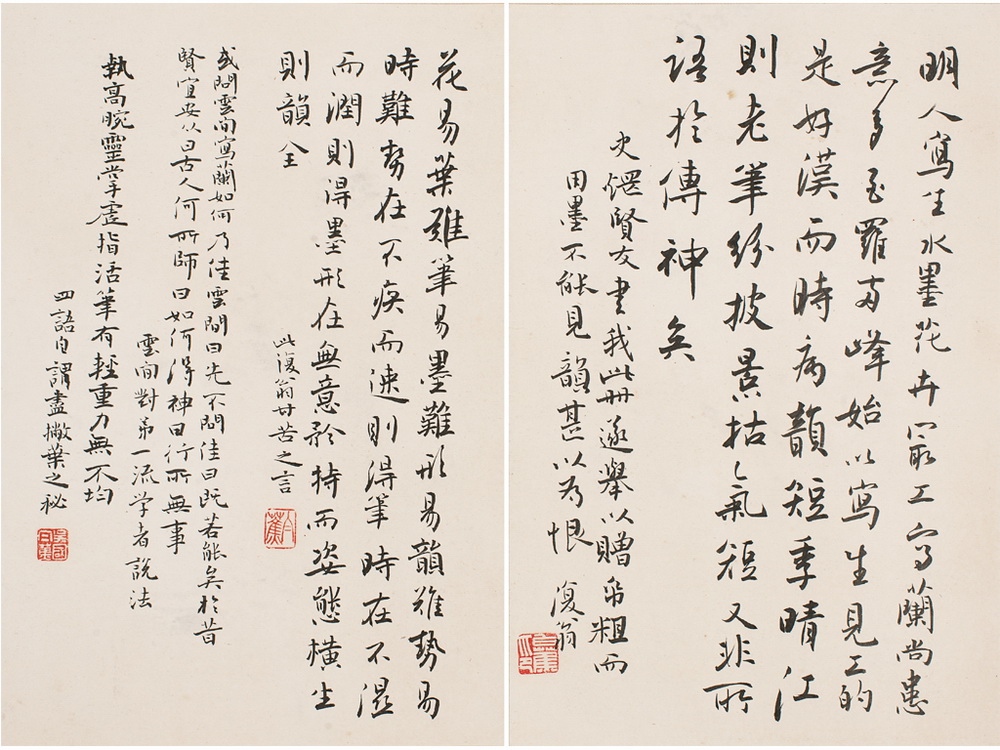 明人寫生水墨花卉冣工写蘭尚患
意多至羅兩峰始以寫生見工的
是好漢而時病韻短季晴江
則老筆紛披景枯氣短又非所
語於傳神矣
史偲賢友書我此冊遂舉以贈帋粗而
用墨不能見韻甚以為恨 復翁
花易葉難筆易墨難形易韻難勢易
時難勢在不疾而速則得筆時在不濕
而潤則得墨形在無意矜持而姿態橫生
則韻全
此復翁甘苦之言
或問雲間寫蘭如何乃佳雲間曰先不問佳曰既若能矣於昔
賢宜安以曰古人何所師曰如何得神曰行所無事
雲間對弟一流學者說法
執高腕靈掌虛指活筆有輕重力無不均
四語自謂盡撇葉之秘